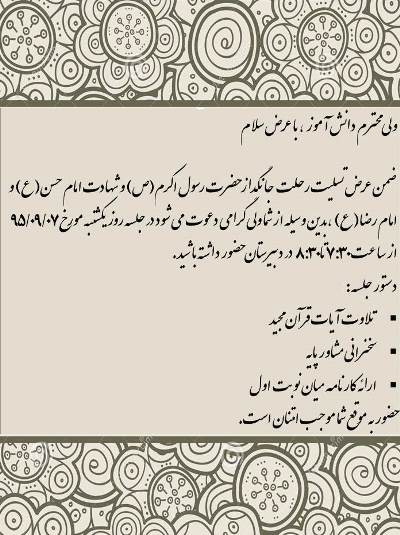 ولی محترم دانش آموز ، با عرض سلام
ضمن عرض تسلیت رحلت جانگداز حضرت رسول اکرم (ص) و شهادت امام حسن (ع) و
امام رضا (ع) ، بدین وسیله از شما ولی گرامی دعوت می شود در جلسه روز یکشنبه مورخ ۹۵/۰۹/۰۷
از ساعت ۷:۳۰ تا ۸:۳۰ در دبیرستان حضور داشته باشید.
دستور جلسه :
▪ تلاوت آیات قرآن مجید
▪ سخنرانی مشاور پایه
▪ ارائه کارنامه میان نوبت اول
حضور به موقع شما موجب امتنان است.